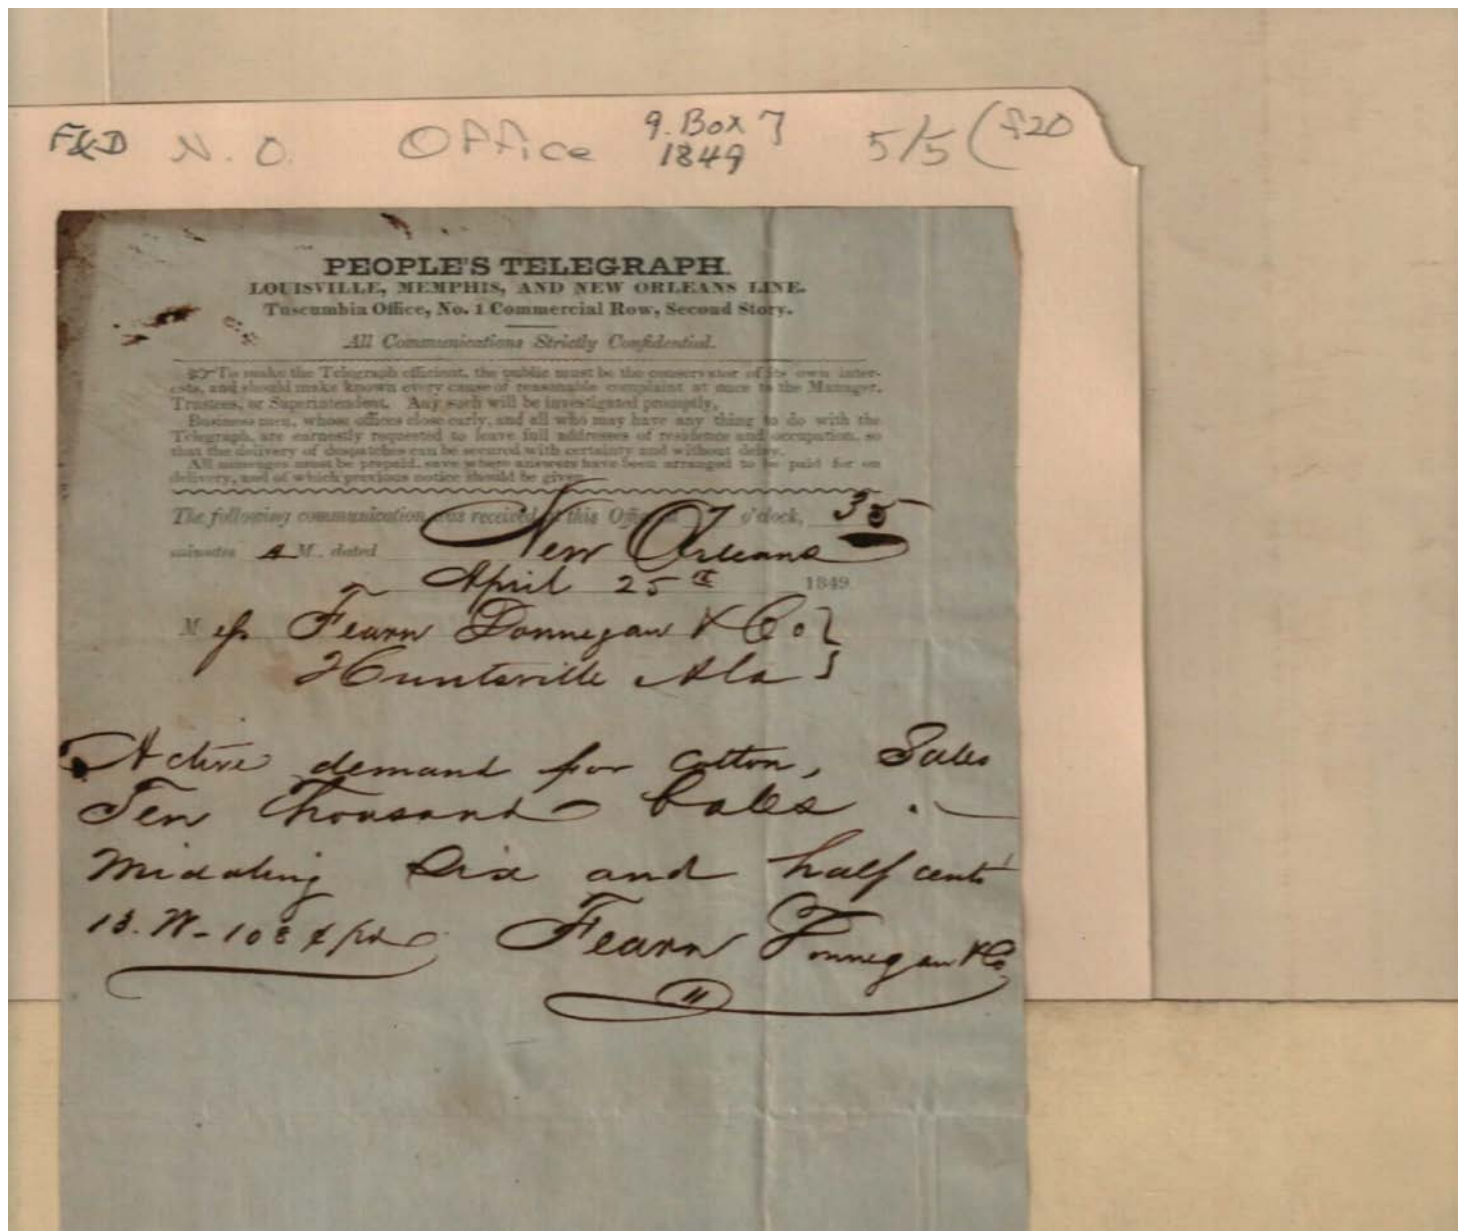 F&D N. O. Office 9. Box 7 5/5 (f20
1849
PEOPLE'S TELEGRAPH.
LOUISVILLE, MEMPHIS, AND NEW ORLEANS LINE.
Tuscumbia Office, No. 1 Commercial Row, Second Story.
All Communications Strictly Confidential.
☞ To make the Telegraph efficient, the public must be the conservator of its own inter-
ests, and should make known every cause of reasonable complaint at once to the Manager,
Trustees, or Superintendent. Any such will be investigated promptly.
Business men, whose offices close early, and all who may have any thing to do with the
Telegraph, are earnestly requested to leave full addresses of residence and occupation, so
that the delivery of despatches can be secured with certainty and without delay.
All messages must be prepaid, save where answers have been arranged to be paid for on
delivery, and of which previous notice should be given.
The following communication was received at this Office at o'clock, 35
minutes A M. dated New Orleans
April 25th 1849
Mess Fearn Donnegan & Co }
Huntsville Ala }
Active demand for cotton, Sales
Ten Thousand bales .
Middling Six and half cents
13. W- 108 ¢ pd Fearn Donnegan & Co